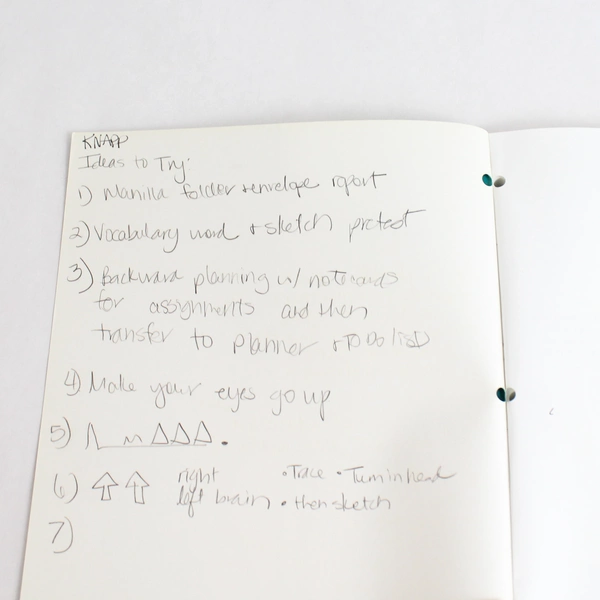 KNAPP
Ideas to Try:
1) Manilla folder + envelope report
2) Vocabulary word + sketch
3) Backward planning w/ notecards
for assignments and then
transfer to planner + TO DO list
4) Make your eyes go up
5)
6) right • Trace • Turn in head
left brain • then sketch
7)